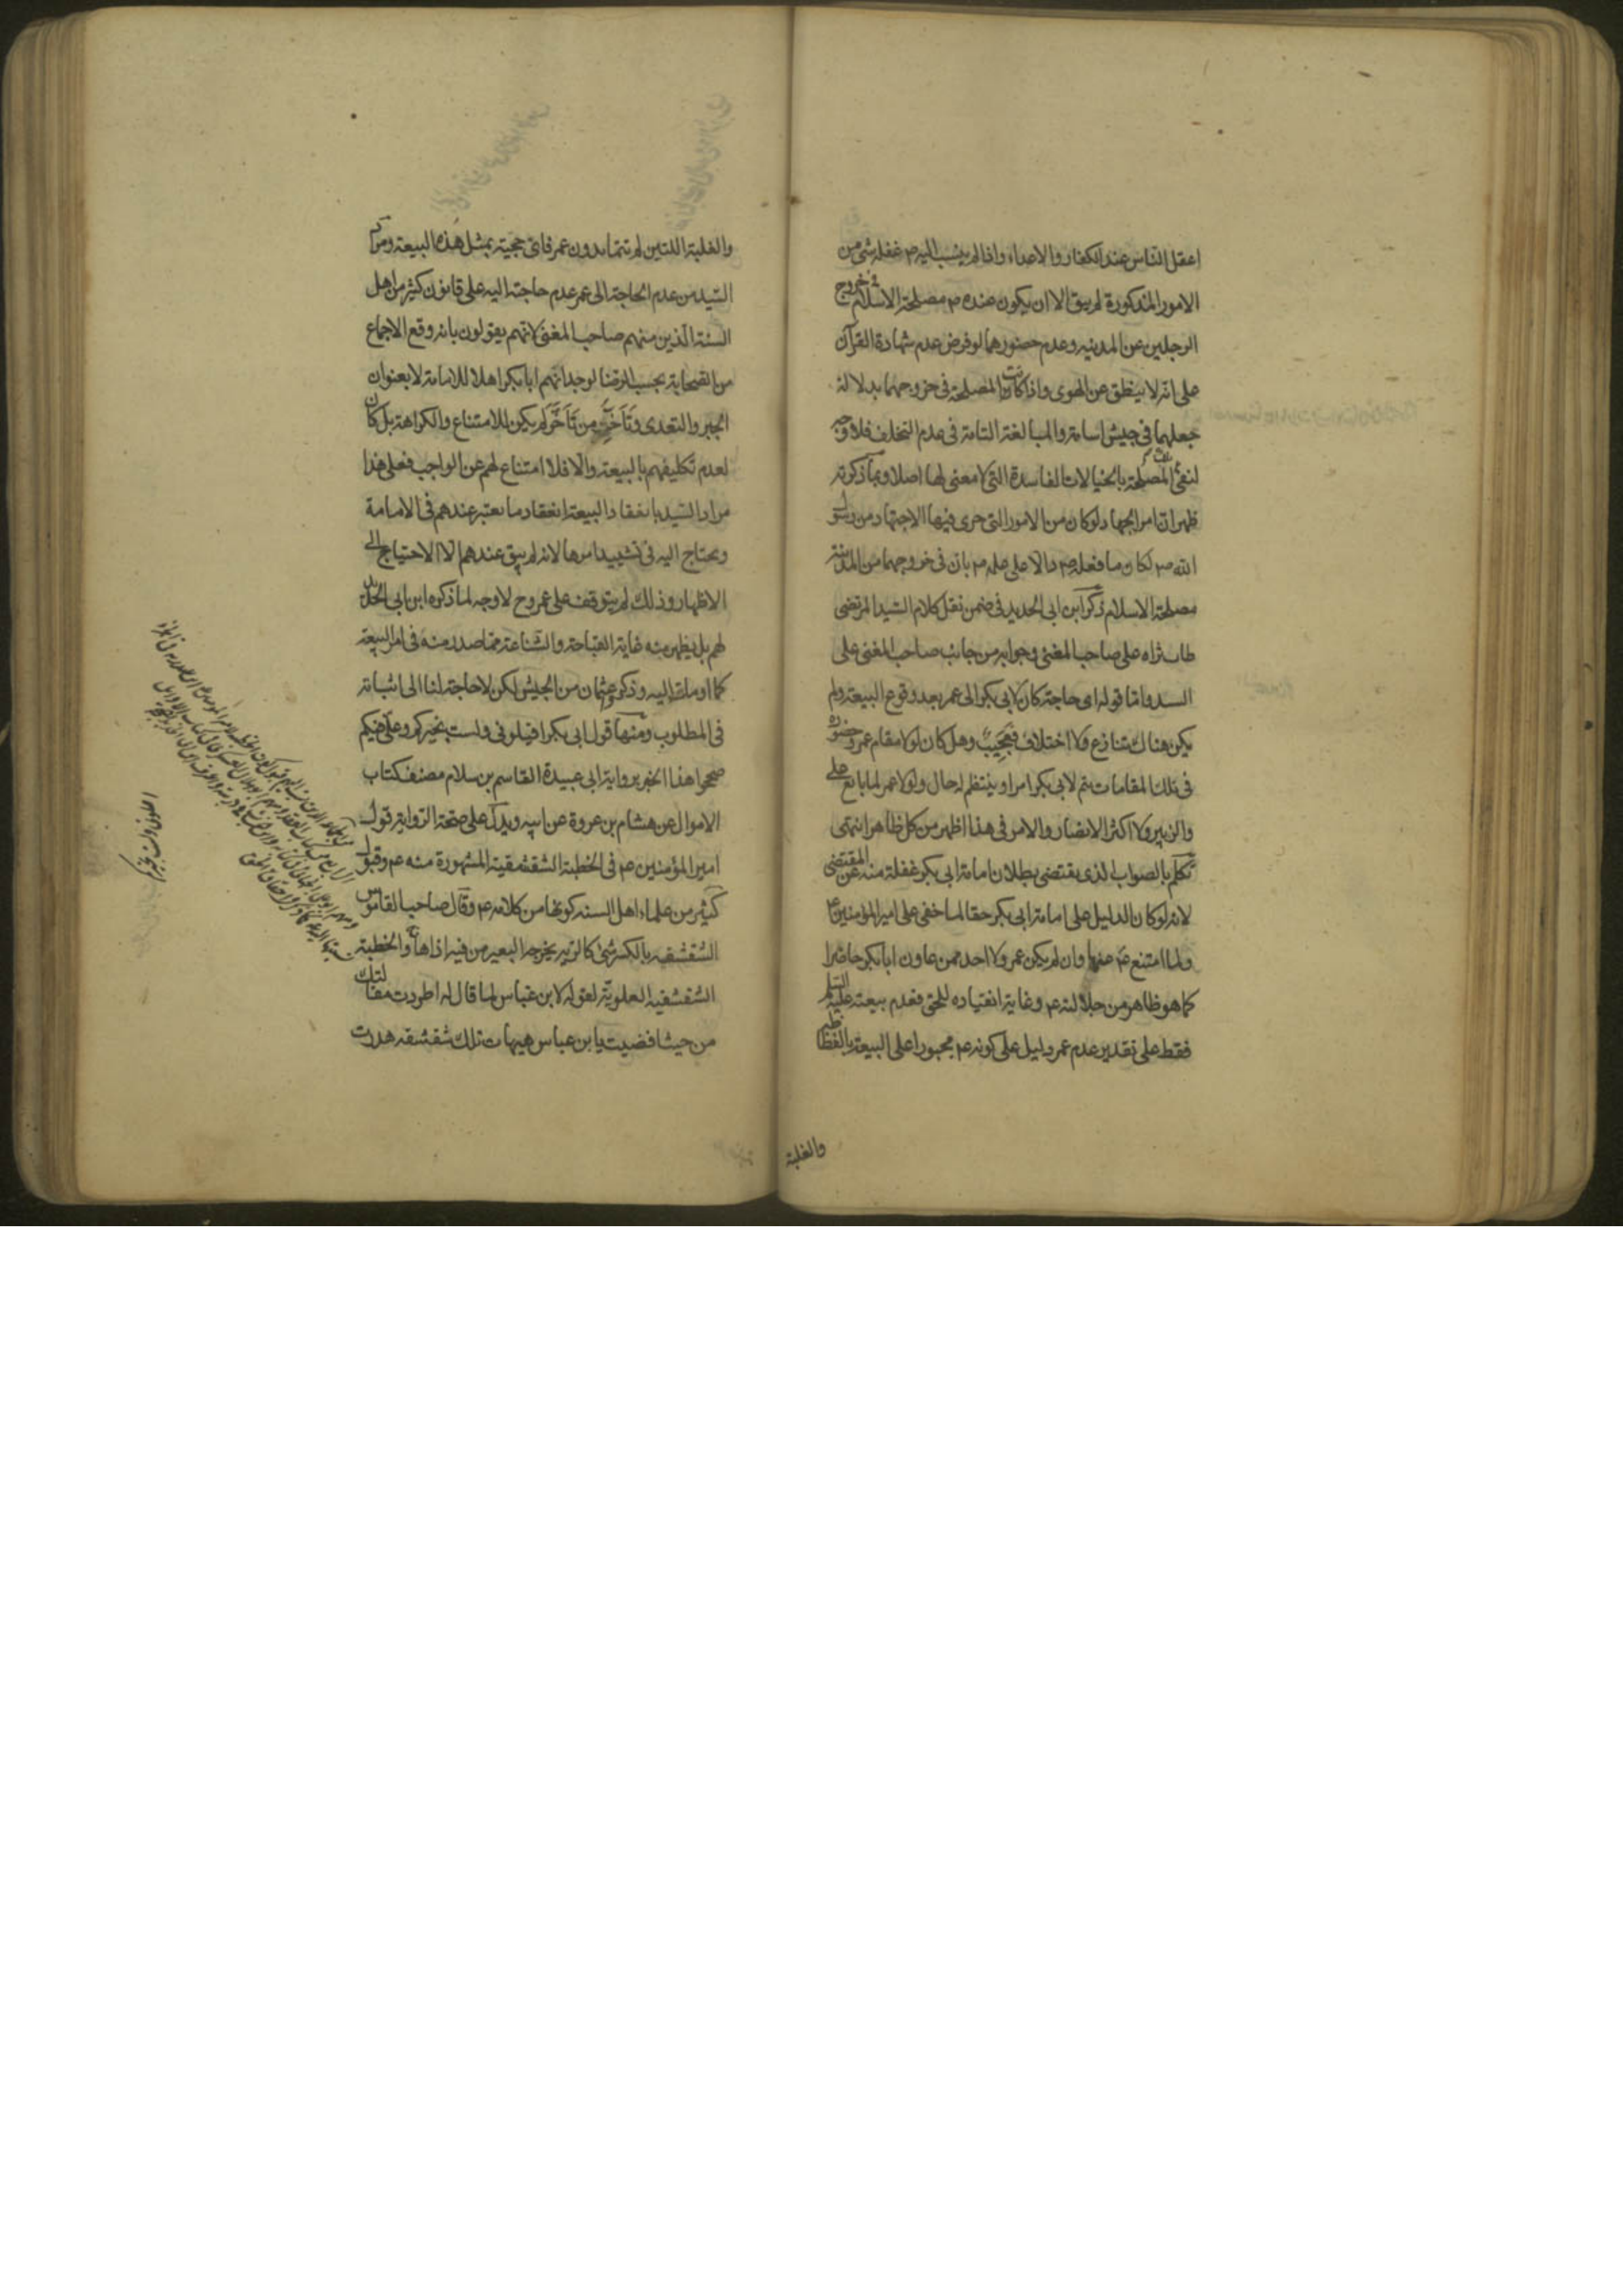 اعقل الناس عند الكفار والاعداء واذا لم ينسب اليه ص غفلة شئ من
الامور المذكورة لم يبق الا ان يكون عنده ص مصلحة الاسلام في خروج
الرجلين عن المدينه وعدم حضورهما لو فرض عدم شهادة القرآن
على انه لا ينطق عن الهوى واذا كانت المصلحة في خروجهما بدلالة
جعلهما في جيش اسامة والمبالغة التامة في عدم التخلف فلا وجه
لنفى المصلحة بالخيالات الفاسدة التي لا معنى لها اصلا وبما ذكرته
ظهر ان امر الجهاد لو كان من الامور التي جرى فيها الاجتهاد من رسول
الله ص لكان ما فعله ص دالا على علمه ص بان في خروجهما من المدينة
مصلحة الاسلام ذكر ابن ابى الحديد في ضمن نقل كلام السيد المرتضى
طاب ثراه على صاحب المغنى وجوابه من جانب صاحب المغنى على
السيد واما قوله اى حاجة كان لابى بكر الى عمر بعد وقوع البيعة ولم
يكن هناك تنازع ولا اختلاف فعجيب وهل كان لولا مقام عمر وحضوره
في تلك المقامات يتم لابى بكر امر او ينتظم له حال ولولا عمر لما بايع على
والزبير ولا اكثر الانصار والامر في هذا اظهر من كل ظاهر انتهى
تكلم بالصواب الذى يقتضى بطلان امامة ابى بكر غفلة منه عن المقتضى
لانه لو كان الدليل على امامة ابى بكر حقا لما خفى على امير المؤمنين ع
ولما امتنع ع عنها وان لم يكن عمر ولا احد ممن عاون ابا بكر حاضرا
كما هو ظاهر من جلالته ع وغاية انقياده للحق فعدم بيعته عليه السلام
فقط على تقدير عدم عمر دليل على كونه ع مجبورا على البيعة بالغلظ
والغلبة
والغلبة اللتين لم تتما بدون عمر فاى حجية بمثل هذه البيعة ومراد
السيد من عدم الحاجة الى عمر عدم حاجة اليه على قانون كثير من اهل
السنة الذين منهم صاحب المغنى لانهم يقولون بانه وقع الاجماع
من الصحابة بحسب الرضا لوجدانهم ابا بكر اهلا للامامة لا بعنوان
الجبر والتعدى وتأخر من تأخر لم يكن للامتناع والكراهة بل كان
لعدم تكليفهم بالبيعة والا فلا امتناع لهم عن الواجب فعلى هذا
مراد السيد بانعقاد البيعة انعقاد ما يعتبر عندهم في الامامة
ويحتاج اليه في تشييد امرها لانه لم يبق عندهم الا الاحتياج الى
الاظهار وذلك لم يتوقف على عمر وح لا وجه لما ذكره ابن ابى الحديد
لهم بل يظهر منه غاية القباحة والشناعة مما صدر منه في امر البيعة
كما اومأت اليه وذكر عثمان من الجيش لكن لا حاجة لنا الى اثباته
في المطلوب ومنها قول ابى بكر اقيلونى ولست بخيركم وعلى فيكم
صححوا هذا الخبر برواية ابى عبيدة القاسم بن سلام مصنف كتاب
الاموال عن هشام بن عروة عن ابيه ويدل على صحة الرواية قول
امير المؤمنين ع في الخطبة الشقشقية المشهورة منه ع وقبول
كثير من علماء اهل السنه كونها من كلامه ع وقال صاحب القاموس
الشقشقه بالكسر شئ كالريه يخرجه البعير من فيه اذا هاج والخطبة
الشقشقيه العلوية لقوله لابن عباس لما قال له اطردت مقالتك
من حيث افضيت يا بن عباس هيهات تلك شقشقه هدرت